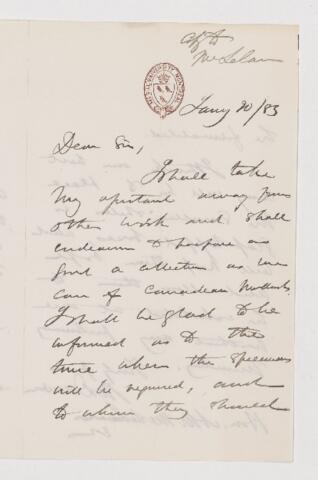 McLelan
McGILL UNIVERSITY MONTREAL
Jany 20/83
Dear Sir,
I shall take
my assistant away from
other work and shall
endeavour to prepare as
good a collection as we
can of Canadian
I shall be glad to be
informed as to the
time when the specimens
will be required, and
to whom they should